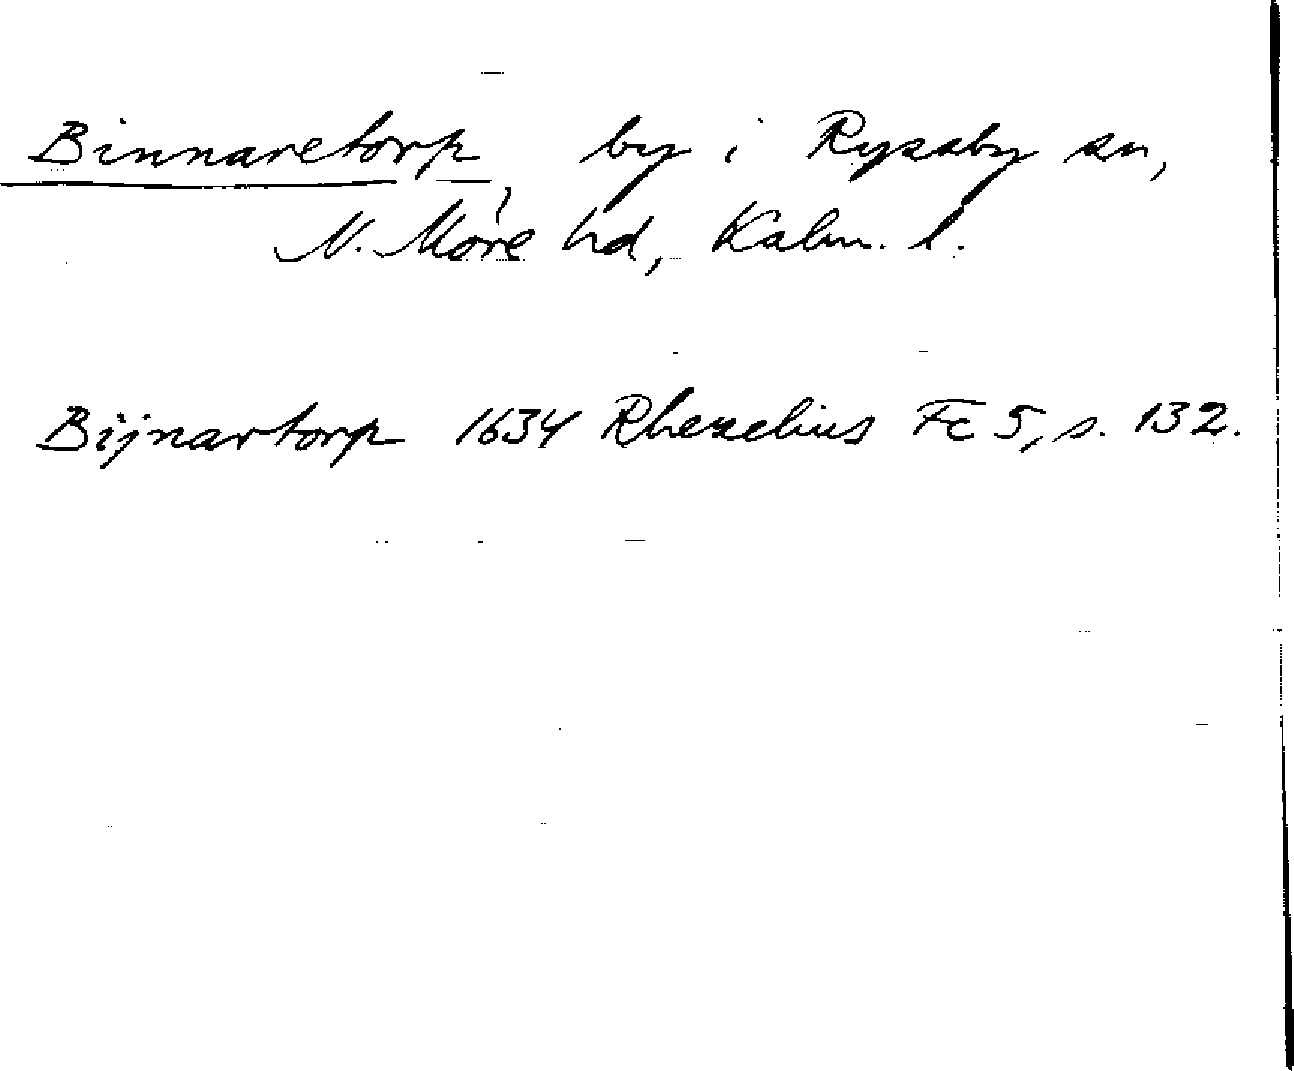 Binnaretorp, by i Ryssby sn,
N. Möre hd, Kalm. l.
Bijnartorp 1634 Rhezelius Fc 5, s. 132.